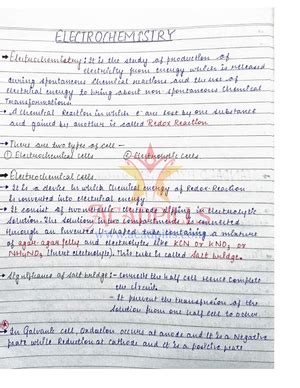 ELECTROCHEMISTRY
→ Electrochemistry: It is the study of production of
electricity from energy which is released
during spontaneous chemical reactions and the use of
electrical energy to bring about non spontaneous chemical
Transformations.
→ A chemical Reaction in which e⁻ are lost by one substance
and gained by another is called Redox Reaction
→ There are two types of cell -
① Electrochemical cells ② Electrolytic cells
→ Electrochemical cells
→ It is a device in which chemical energy of Redox Reaction
is converted into electrical energy
→ It consist of two metallic electrode dipping in electrolytic
solution. The solution in two compartment is connected
through an inverted shaped tube containing a mixture
of agar-agar jelly and electrolytes like KCN or KNO₃ or
NH₄NO₃ (inert electrolyte). This tube is called salt bridge.
→ Significance of salt bridge:- Connects the half cell hence complete
the circuit.
- It prevent the transfusion of the
solution from one half cell to other
In Galvanic cell, Oxidation occurs at anode and it is a Negative
plate while Reduction at cathode and it is a positive plate.